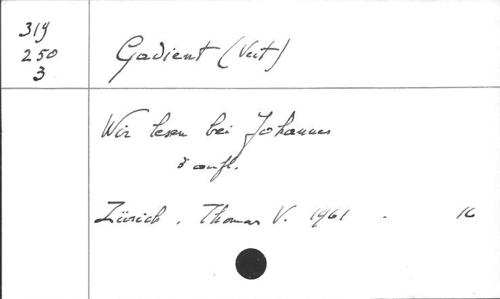 319
250
3
Gadient (Veit)
Wir lesen bei Johannes
3 aufl.
Zürich, Thomas V. 1961. 16